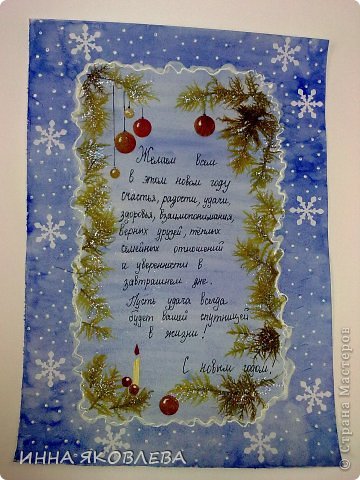 Желаем всем
в этом новом году
счастья, радости, удачи,
здоровья, взаимопонимания,
верных друзей, тёплых
семейных отношений
и уверенности в
завтрашнем дне.
Пусть удача всегда
будет вашей спутницей
в жизни!
С новым годом!
ИННА ЯКОВЛЕВА
© Страна Мастеров